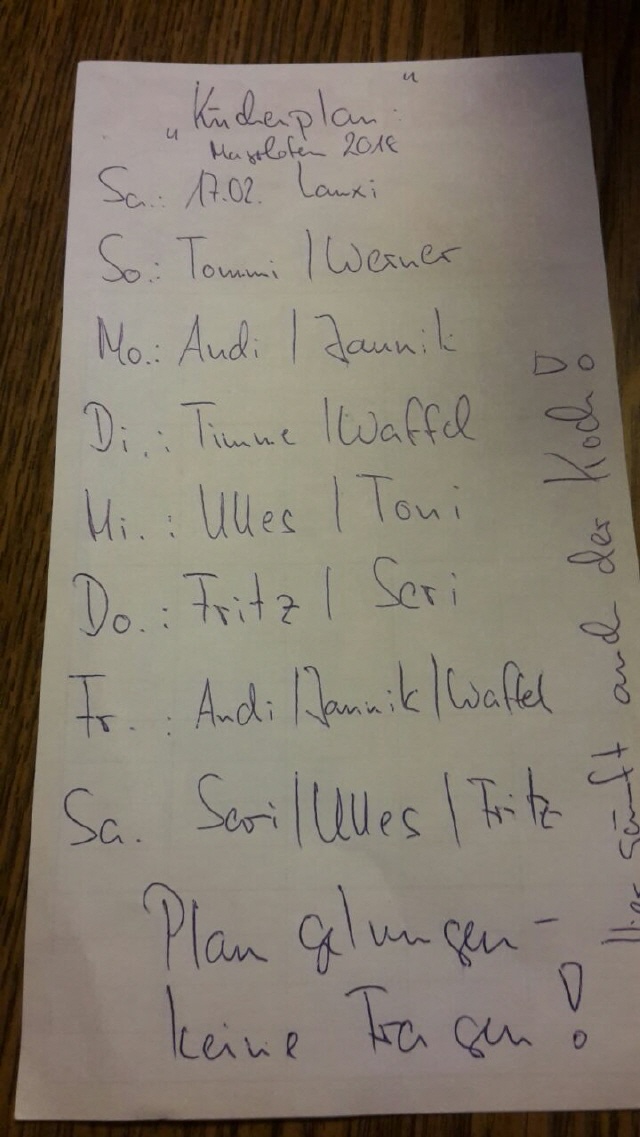 „Küchenplan“
2018
Sa.: 17.02. Lauxi
So.: Tommi / Werner
Mo.: Andi / Jannik
Di.: Timme / Waffel
Mi.: Ulles / Toni
Do.: Fritz / Scri
Fr.: Andi / Jannik / Waffel
Sa. Scri / Ulles / Fritz
Plan gelungen -
keine Fragen!
Hier säuft auch der Koch!